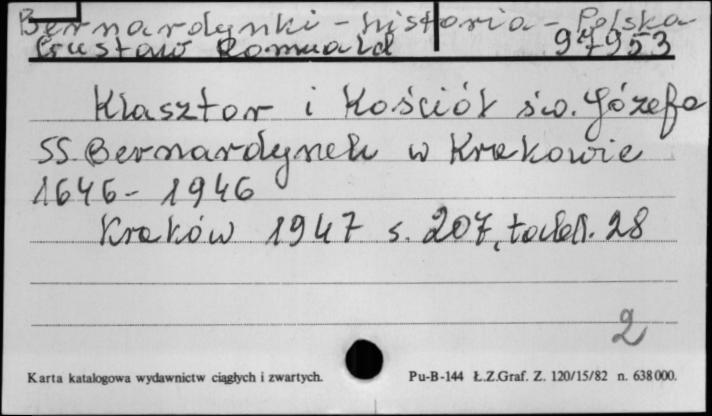 Bernardynki - historia - Polska
Gustaw Romuald 97953
Klasztor i Kościół św. Józefa
SS. Bernardynek w Krakowie
1646 - 1946
Kraków 1947 s. 207, tabl. 28
2
Karta katalogowa wydawnictw ciągłych i zwartych. Pu-B-144 Ł.Z.Graf. Z. 120/15/82 n. 638000.